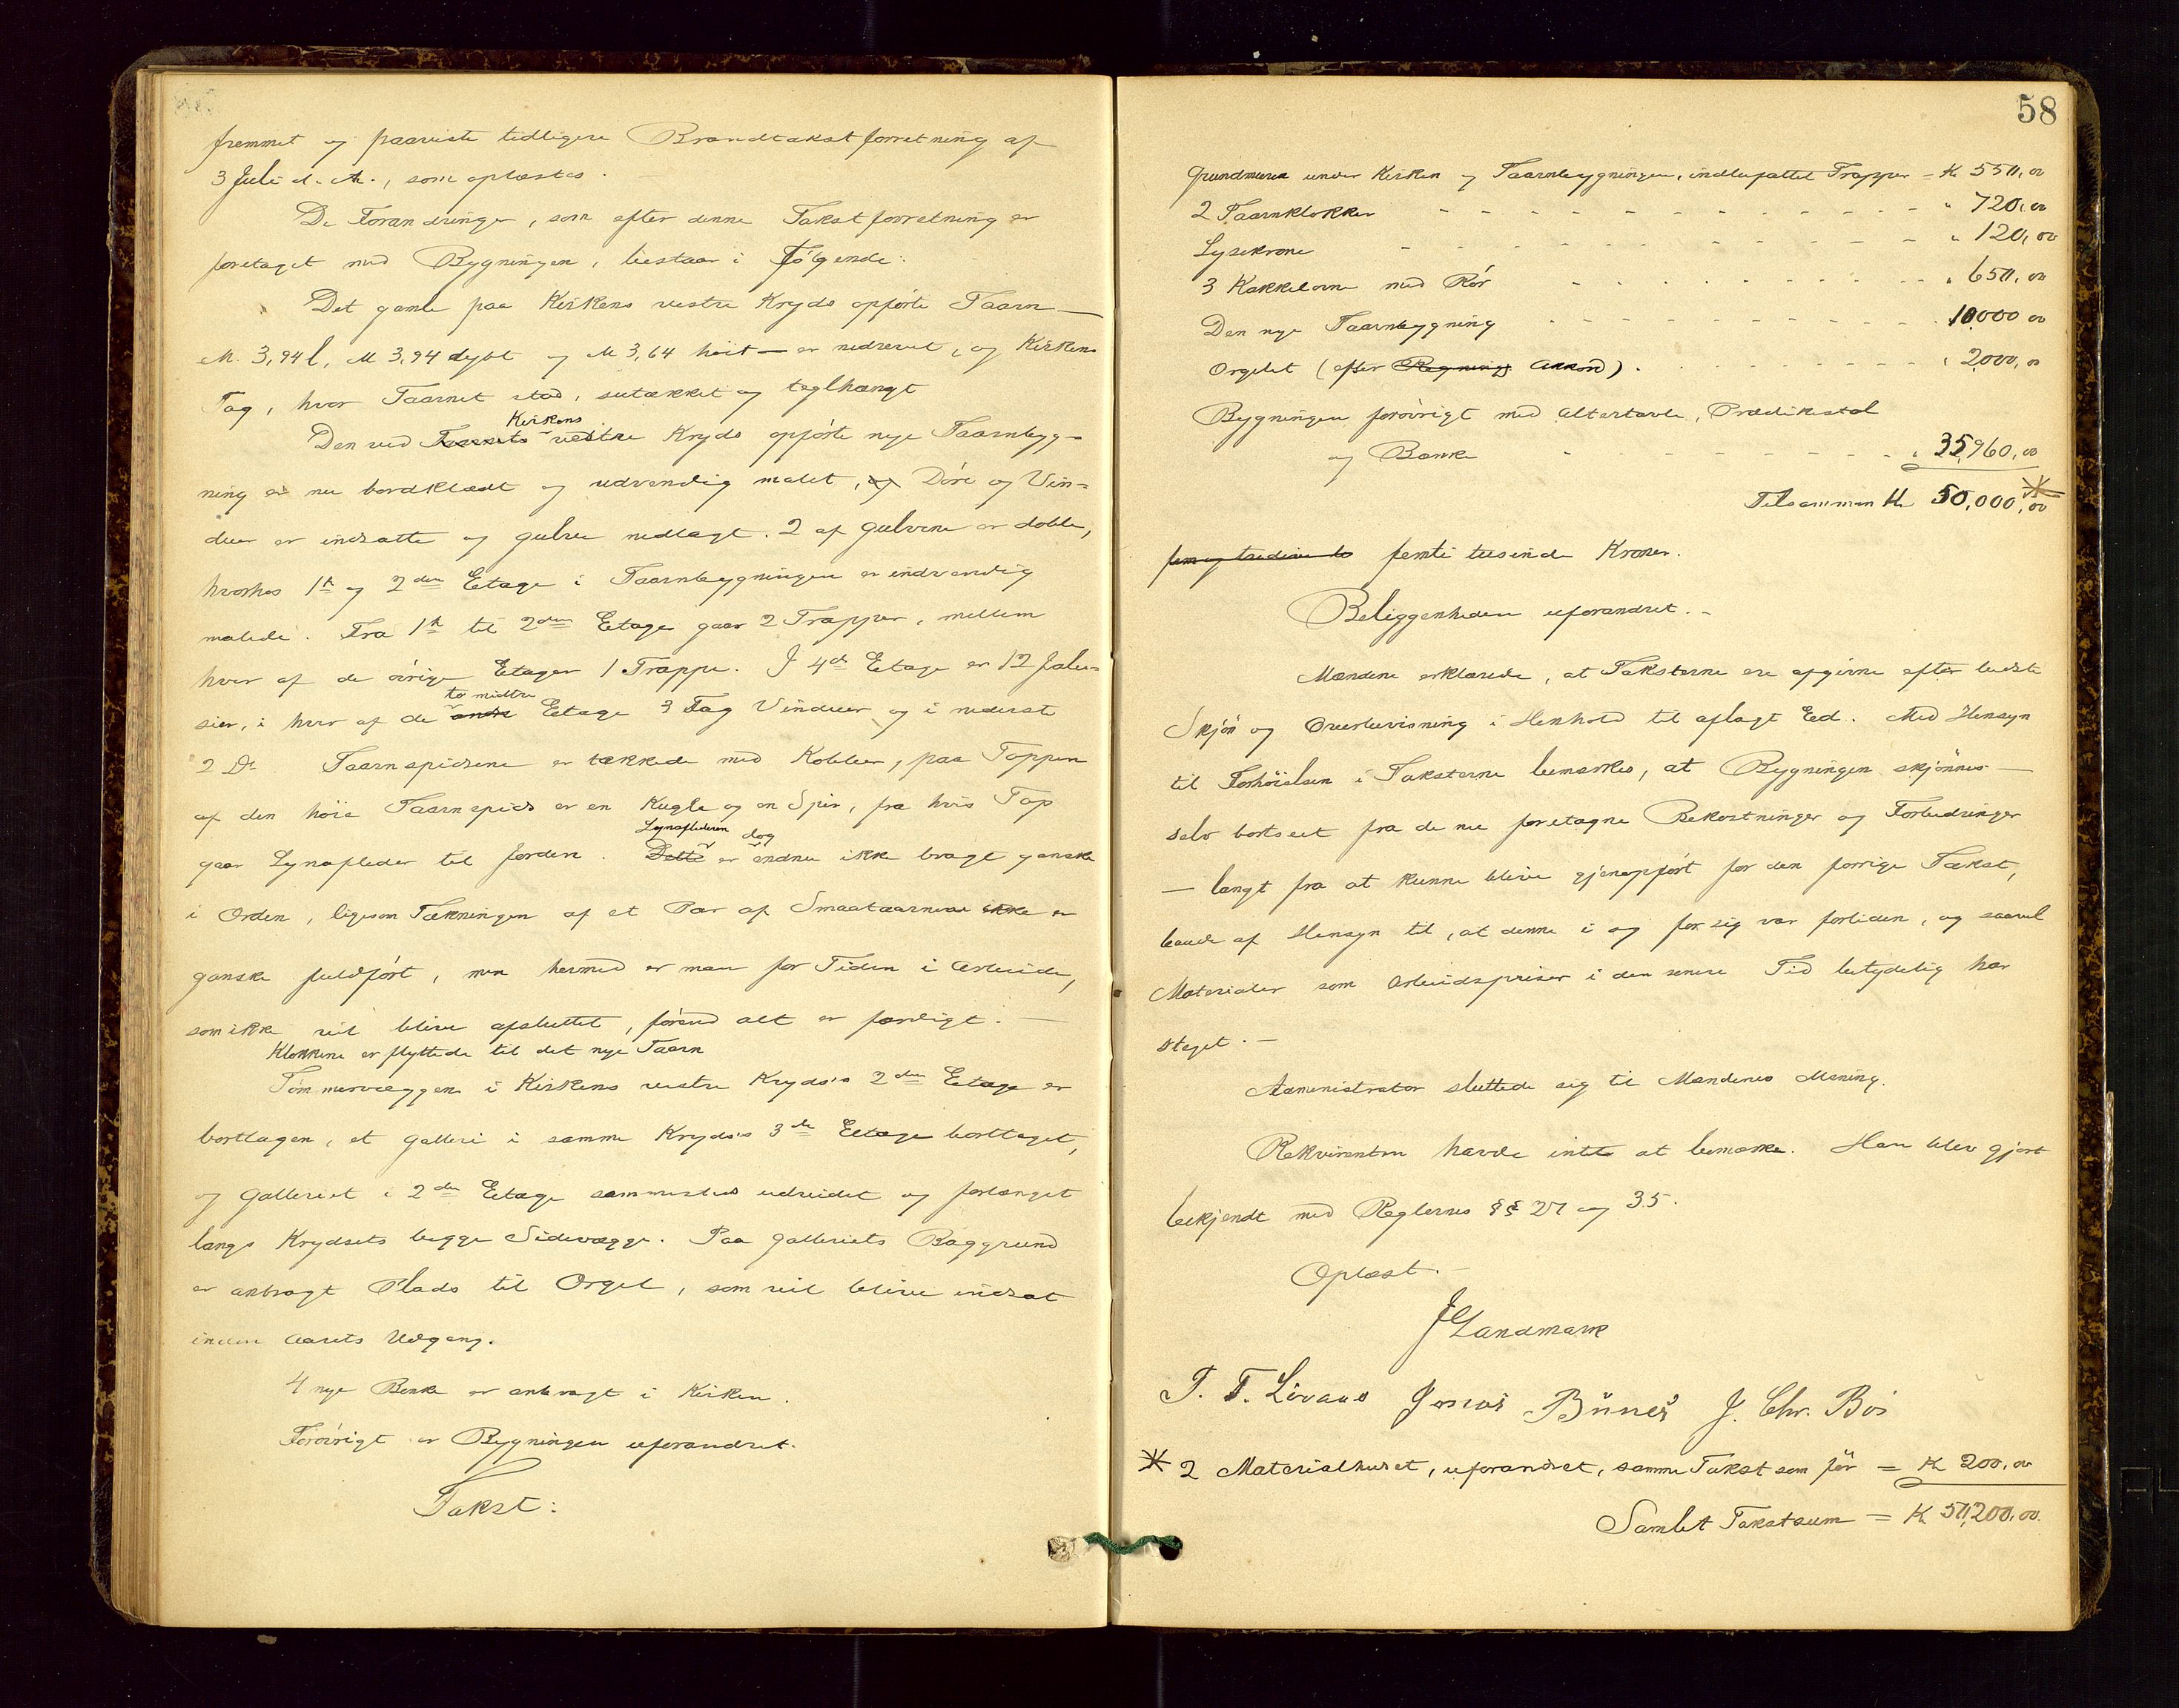 fremmet og paaviste tidligere Brandtakstforretning af
3 Juli d. A., som oplæstes.
De Forandringer, som efter denne Takstforretning er
foretaget med Bygningen, bestaar i Følgende:
Det gamle paa Kirkens vestre Kryds opførte Taarn —
M. 3,94 l, M 3,94 dybt og M 3,64 høit — er nedrevet, og Kirkens
Tag, hvor Taarnet stod, sutækket og teglhængt
Kirkens
Den ved Taarnets vestre Kryds opførte nye Taarnbyg-
ning er nu bordklædt og udvendig malet, og Døre og Vin-
duer er indsatte og Gulve nedlagt. 2 af Gulvene er doble,
hvorhos 1ste og 2den Etage i Taarnbygningen er indvendig
malede. Fra 1ste til 2den Etage gaar 2 Trapper, mellem
hver af de øvrige Etager 1 Trappe. I 4de Etage er 12 Jalu-
to midtre
sier, i hver af de andre Etage 3 Fag Vinduer og i nederste
2 Do Taarnspidsene er tækkede med Kobber, paa Toppen
af den høie Taarnspids er en Kugle og en Spir, fra hvis Top
Lynaflederen dog
gaar Lynafleder til Jorden. Dette er endnu ikke bragt ganske
i Orden, ligesom Tækningen af et Par af Smaataarnene ikke er
ganske fuldført, men hermed er man for Tiden i Arbeide,
som ikke vil blive afsluttet, førend alt er færdigt. —
Klokkene er flyttede til det nye Taarn
Tømmervæggen i Kirkens vestre Kryds's 2den Etage er
borttagen, et Galleri i samme Kryds's 3die Etage borttaget,
og Galleriet i 2den Etage sammesteds udvidet og forlænget
langs Krydsets begge Sidevægge. Paa Galleriets Baggrund
er anbragt Plads til Orgel, som vil blive indsat
inden Aarets Udgang.
4 nye Benke er anbragt i Kirken.
Forøvrigt er Bygningen uforandret.
Takst:
58
Grundmuren under Kirken og Taarnbygningen, indbefattet Trapper = Kr 550,00
2 Taarnklokker - - - " 720,00
Lysekrone - - - " 120,00
3 Kakkelovne med Rør - - - " 650,00
Den nye Taarnbygning - - - 10000 00
Orgelet (efter Regning Akkord). - - - " 2000,00
Bygningen forøvrigt med Altertavle, Prædikestol
og Bænke - - - " 35,960,00
Tilsammen Kr 50,000,00 *
fem og tredive to femti tusinde Kroner.
Beliggenheden uforandret. -
Mændene erklærede, at Taksterne ere afgivne efter bedste
Skjøn og Overbevisning i Henhold til aflagt Eed. Med Hensyn
til Forhøielsen i Taksterne bemærkes, at Bygningen skjønnes —
selv bortseet fra de nu foretagne Bekostninger og Forbedringer
— langt fra at kunne blive gjenopført for den forrige Takst,
baade af Hensyn til, at denne i og for sig var forliden, og saavel
Materialer som Arbeidspriser i den senere Tid betydelig har
steget. -
Administrator sluttede sig til Mændenes Mening.
Rekvirenten havde intet at bemærke. Han blev gjort
bekjendt med Reglernes §§ 27 og 35.
Oplæst. -
J Landmark
J. Chr. Bø
* 2 Materialhuset, uforandret, samme Takst som før = Kr 200,00
Samlet Takstsum = Kr 50,200,00.